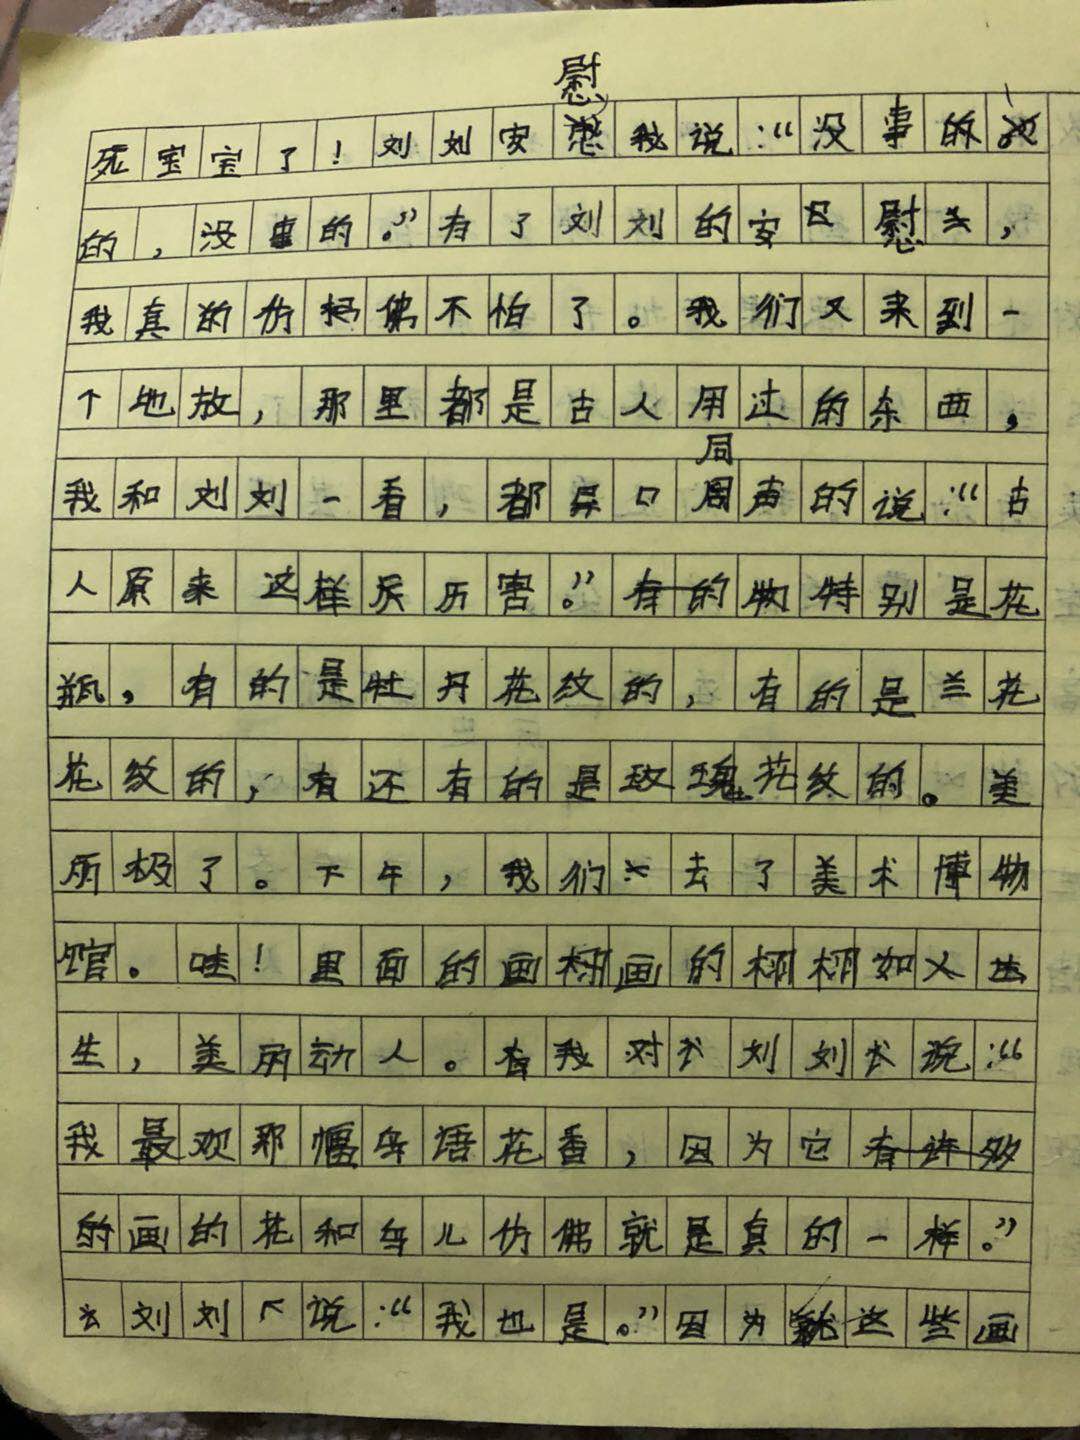 慰
死宝宝了！刘刘安我说：“没事的
的，没事的。”有了刘刘的安慰，
我真的仿佛不怕了。我们又来到一
个地放，那里都是古人用过的东西，
同
我和刘刘一看，都异口周声的说：“古
人原来这样厉害。”有的物特别是花
瓶，有的是牡丹花纹的，有的是兰花
花纹的，还有的是玫瑰花纹的。美
丽极了。下午，我们去了美术博物
馆。哇！里面的画栩画的栩栩如
生，美丽动人。我对刘刘说：“
我最欢那幅鸟语花香，因为它有许多
的画的花和鸟儿仿佛就是真的一样。”
刘刘说：“我也是。”因为这些画